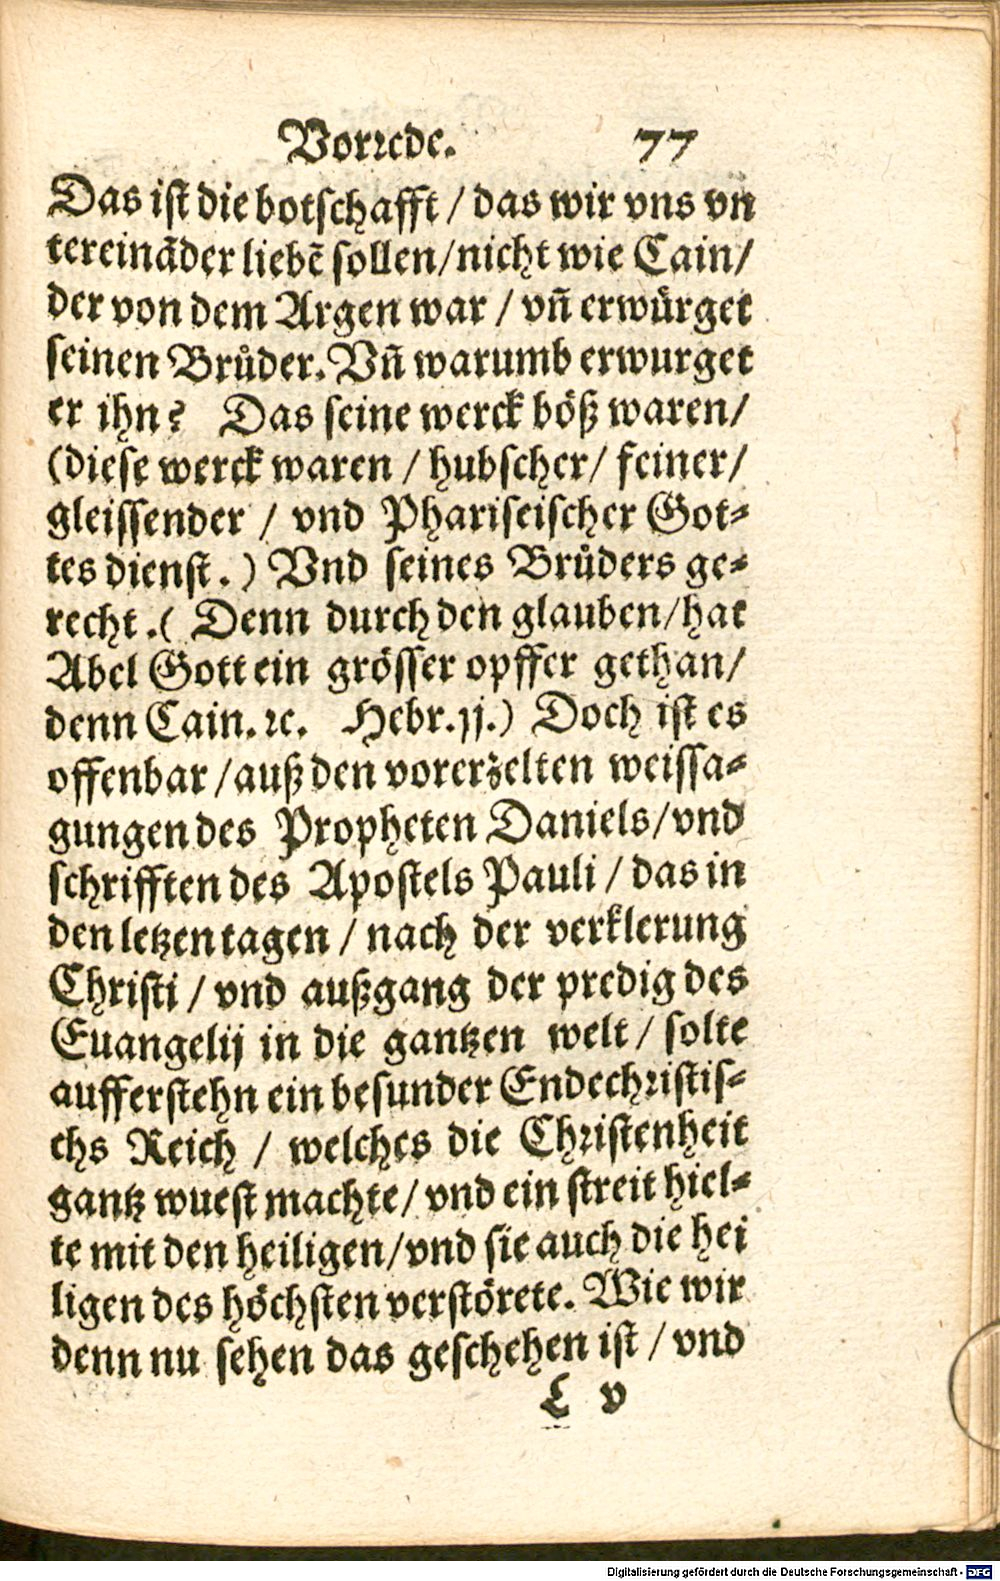 Vorrede. 77
Das ist die botschafft / das wir vns vn
tereinãder liebẽ sollen/nicht wie Cain/
der von dem Argen war / vñ erwürget
seinen Brůder. Vñ warumb erwurget
er ihn? Das seine werck böß waren/
(diese werck waren / hubscher/ feiner/
gleissender / vnd Phariseischer Got-
tes dienst.) Vnd seines Brůders ge-
recht.( Denn durch den glauben/hat
Abel Gott ein grösser opffer gethan/
denn Cain. ꝛc. Hebr.jj.) Doch ist es
offenbar /auß den vorerzelten weissa-
gungen des Propheten Daniels/vnd
schrifften des Apostels Pauli / das in
den letzen tagen / nach der verklerung
Christi / vnd außgang der predig des
Euangelij in die gantzen welt / solte
aufferstehn ein besunder Endechristis-
chs Reich / welches die Christenheit
gantz wuest machte/ vnd ein streit hiel-
te mit den heiligen/vnd sie auch die hei
ligen des höchsten verstörete. Wie wir
denn nu sehen das geschehen ist / vnd
L v
Digitalisierung gefördert durch die Deutsche Forschungsgemeinschaft - DFG